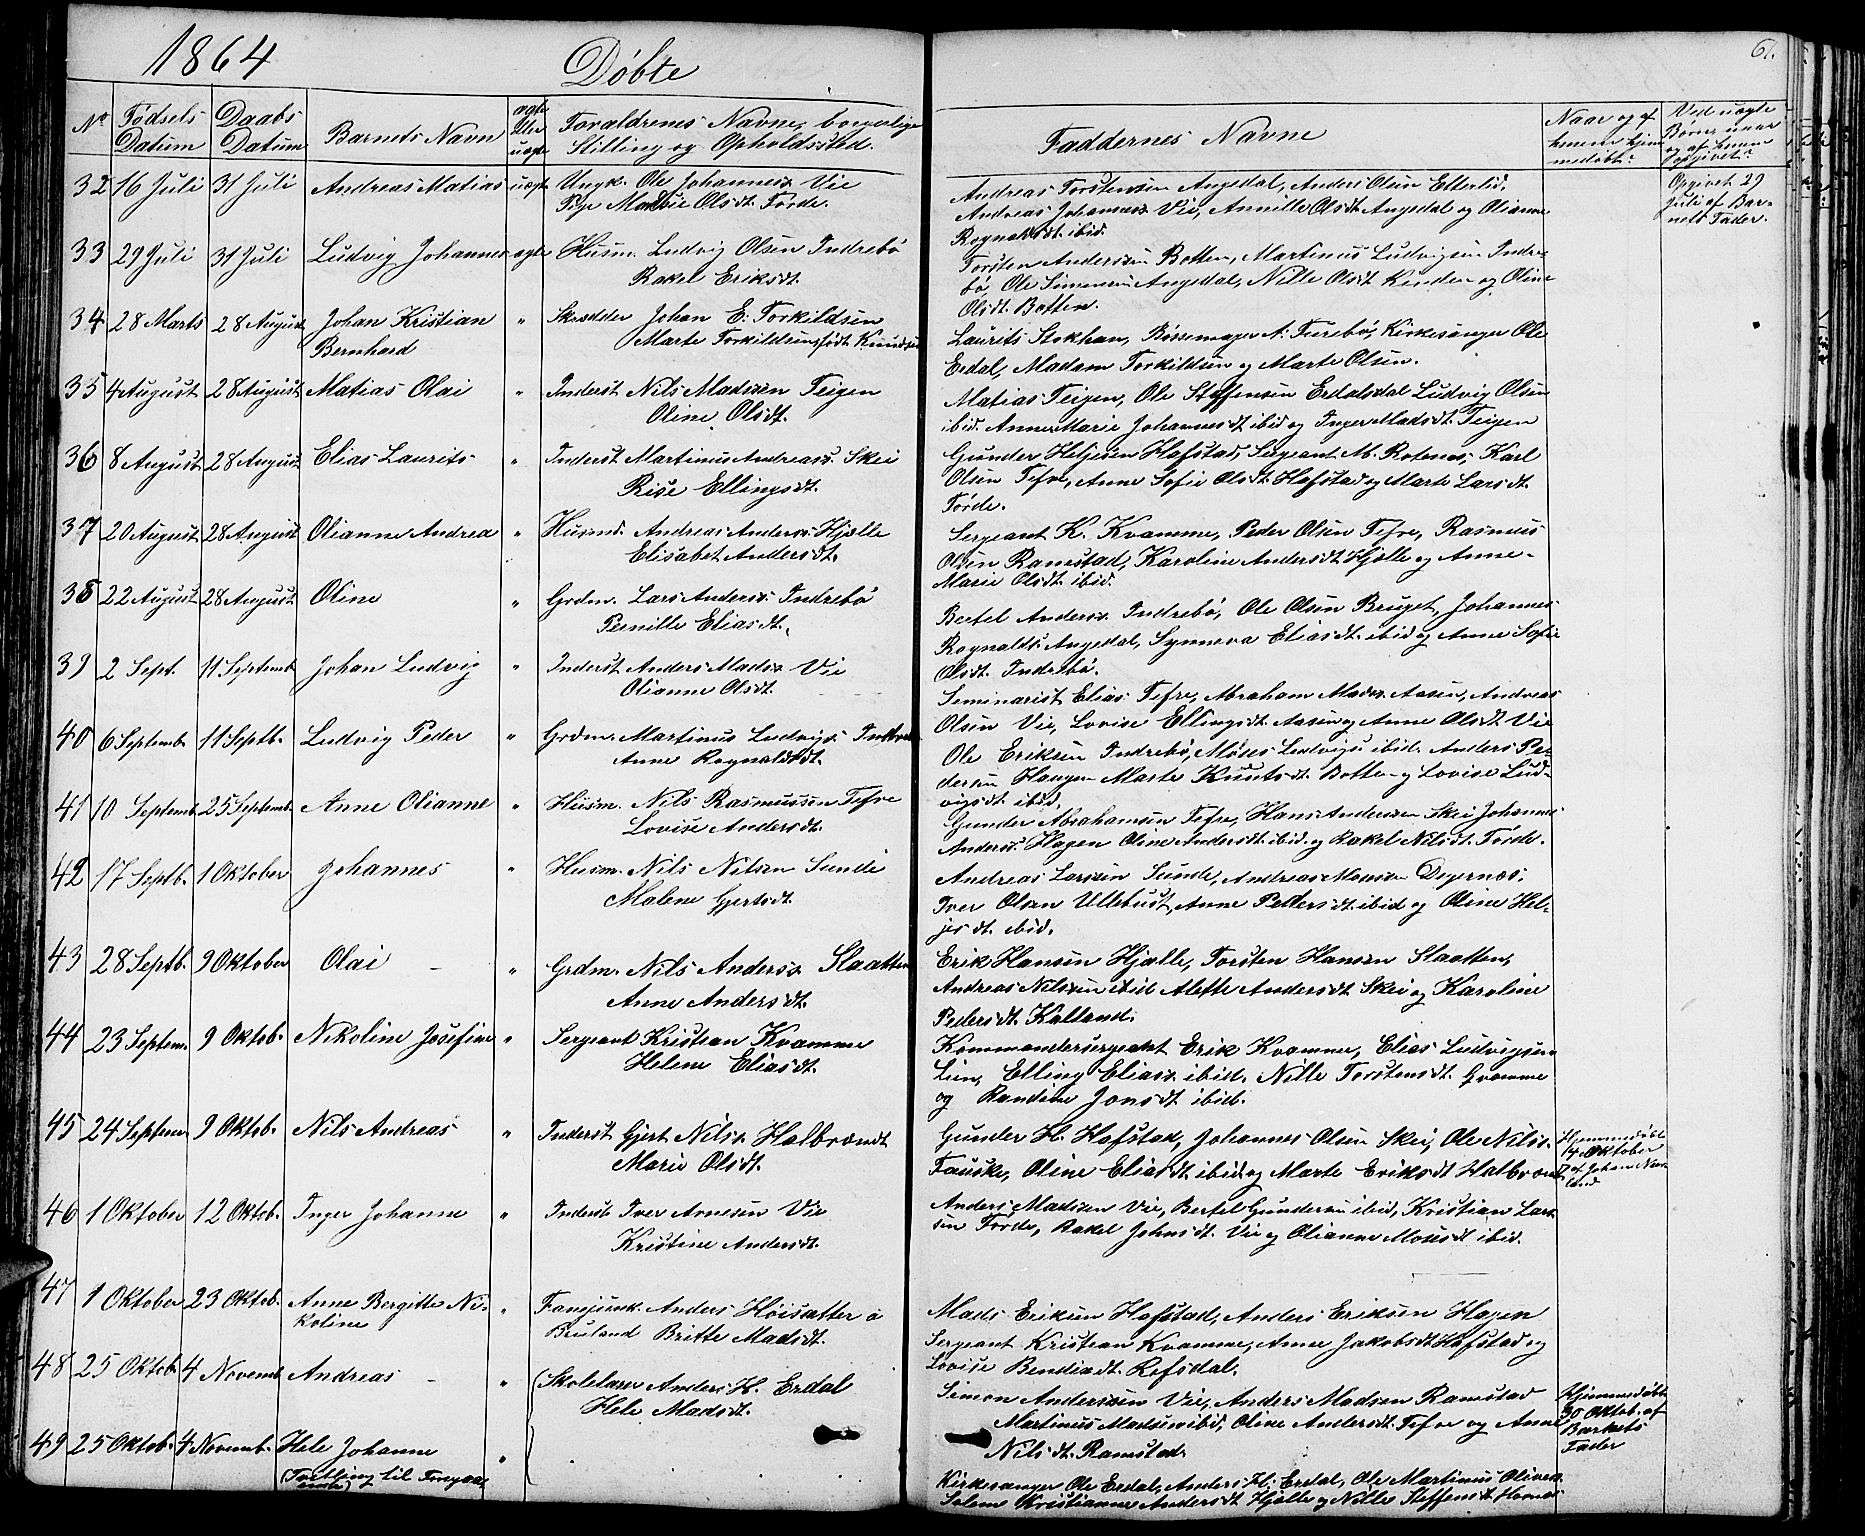 1864
Døbte
61.
No
Fødsels
Datum
Daabs
Datum
Barnets Navn
ægte
eller
uægte
Forældrenes Navne, borgerlige
Stilling og Opholdssted.
Faddernes Navne
Naar og af
hvem hjem-
medøbt?
Ved uægte
Børn: naar
og af hvem
opgivet?
32 16 Juli 31 Juli Andreas Matias uægt. Ungk. Ole Johanness. Vie
Pige Marie Olsdt. Førde.
Andreas Torstensen Angedal, Anders Olsen Ellerlid,
Andreas Johanness. Vie, Annille Olsdt. Angedal og Olianne
Rognaldsdt. ibid.
Opgivet 29
Juli af Bar-
nets Fader.
33 29 Juli 31 Juli Ludvig Johannes ægte Husm. Ludvig Olsen Indrebø
Rakel Eriksdt.
Torsten Andersen Botten, Martinus Ludvigsen Indre-
bø, Ole Simonsen Angedal, Nille Olsdt. Kinden og Oline
Olsdt. Botten.
34 28 Marts 28 August Johan Kristian
Bernhard
" Skrædder Johan E. Torkildsen
Marte Torkildsen, født Knudsen
Laurits Stokhan, Børsemager A. Furebø, Kirkesanger Ole
Erdal, Madam Torkildsen og Marte Olsen.
35 4 August 28 August Matias Olai " Inderst Nils Madssen Teigen
Oline Olsdt.
Matias Teigen, Ole Steffensen Erdalsdal Ludvig Olsen
ibid. Anne Marie Johannesdt ibid og Inger Madsdt. Teigen
36 8 August 28 August Elias Laurits " Inderst Martinus Andreass. Skei
Rise Ellingsdt.
Gunder Heljesen Hafstad, Sergeant M. Rotenes, Karl
Olsen Tefre, Anne Sofie Olsdt. Hafstad og Marte Larsdt.
Førde.
37 20 August 28 August Olianne Andrea " Husmd. Andreas Anderss. Hjelle
Elisabet Andersdt.
Sergeant K. Kvamme, Peder Olsen Tefre, Rasmus
Olsen Ramstad, Karoline Andersdt Hjelle og Anne-
Marie Olsdt. ibid.
38 22 August 28 August Oline " Grdm. Lars Anderss. Indrebø
Pernille Eliasdt.
Bertel Anderss. Indrebø, Ole Olsen Bruget, Johannes
Rognalds. Angedal, Synneva Eliasdt. ibid og Anne Sofie
Olsdt. Indrebø.
39 2 Sept. 11 Septemb. Johan Ludvig " Inderst Anders Madss. Vie
Olianne Olsdt.
Seminarist Elias Tefre, Abraham Madss. Aasen, Andreas
Olsen Vie, Lovise Ellingsdt. Aasen og Anne Olsdt Vie
40 6 Septemb. 11 Septb. Ludvig Peder " Grdm. Martinus Ludvigs. Indrebø
Anne Rognaldsdt.
Ole Eriksen Indrebø, Moses Ludvigs. ibid. Anders Pe-
dersen Haugen Marte Knutsdt Botten og Lovise Lud-
vigsdt. ibid.
41 10 Septemb. 25 Septemb. Anne Olianne " Husm. Nils Rasmussen Tefre
Lovise Andersdt.
Gunder Abrahamsen Tefre, Hans Anderssen Skei Johannes
Anderss. Hagen Oline Andersdt. ibid. og Rakel Nilsdt. Førde.
42 17 Septb. 1 Oktober Johannes " Husm. Nils Nilsen Sunde
Malene Gjertsdt.
Andreas Larssen Sunde, Andreas Monsen Degernæs,
Iver Olsen Ullebust, Anne Pedersdt. ibid og Oline Hel-
jesdt. ibid.
43 28 Septb. 9 Oktober Olai - " Grdm. Nils Anderss. Slaatten
Anne Andersdt.
Erik Hansen Hjelle, Torsten Hansen Slaatten,
Andreas Nilssen ibid Alette Andersdt. Skei og Karoline
Pedersdt. Kalland.
44 23 Septem. 9 Oktob. Nikoline Josefine " Sergeant Kristian Kvamme
Helene Eliasdt.
Kommandersergeant Erik Kvamme, Elias Ludvigsen
Lien, Elling Eliass. ibid. Nille Torstensdt. Kvamme
og Randine Jonsdt. ibid.
45 24 Septem. 9 Oktob. Nils Andreas " Inderst Gjert Nilss. Halbrændt
Marie Olsdt.
Gunder H. Hafstad, Johannes Olsen Skei, Ole Nilss.
Fauske, Oline Eliasdt. ibid og Marte Eriksdt Halbrændt
Hjemmedøbt
14 Oktober
af Johan New-
land
46 1 Oktober 12 Oktob. Inger Johanne " Inderst Iver Arnesen Vie
Kristine Andersdt.
Anders Madssen Vie, Bertel Gundersen ibid, Kristian Lars-
sen Førde, Rakel Johnsdt. Vie og Olianne Mosesdt ibid.
47 1 Oktober 23 Oktob. Anne Bergitte Ni-
koline
" Fanejunk. Anders Høisætter a
Bruland Britte Madsdt.
Mads Eriksen Hafstad, Anders Eriksen Hagen
Sergeant Kristian Kvamme, Anne Jakobsdt Hafstad og
Lovise Bendixdt. Refsdal.
48 25 Oktob. 4 Novemb. Andreas - " Skolelærer Anders H. Erdal
Hele Madsdt.
Simon Anderssen Vie, Anders Madsen Ramstad
Martinus Madssen ibid, Oline Andersdt. Tefre og Anne
Nilsdt. Ramstad.
Hjemmedøbt
30 Oktob. af
Barnets
Fader
49 25 Oktob. 4 Novemb. Hele Johanne
(Tvilling til Foregaa-
ende)
"
Kirkesanger Ole Erdal, Anders H. Erdal, Ole Martinus Olivers.
Solem Kristianne Andersdt Hjelle og Nille Steffensdt. Hornes